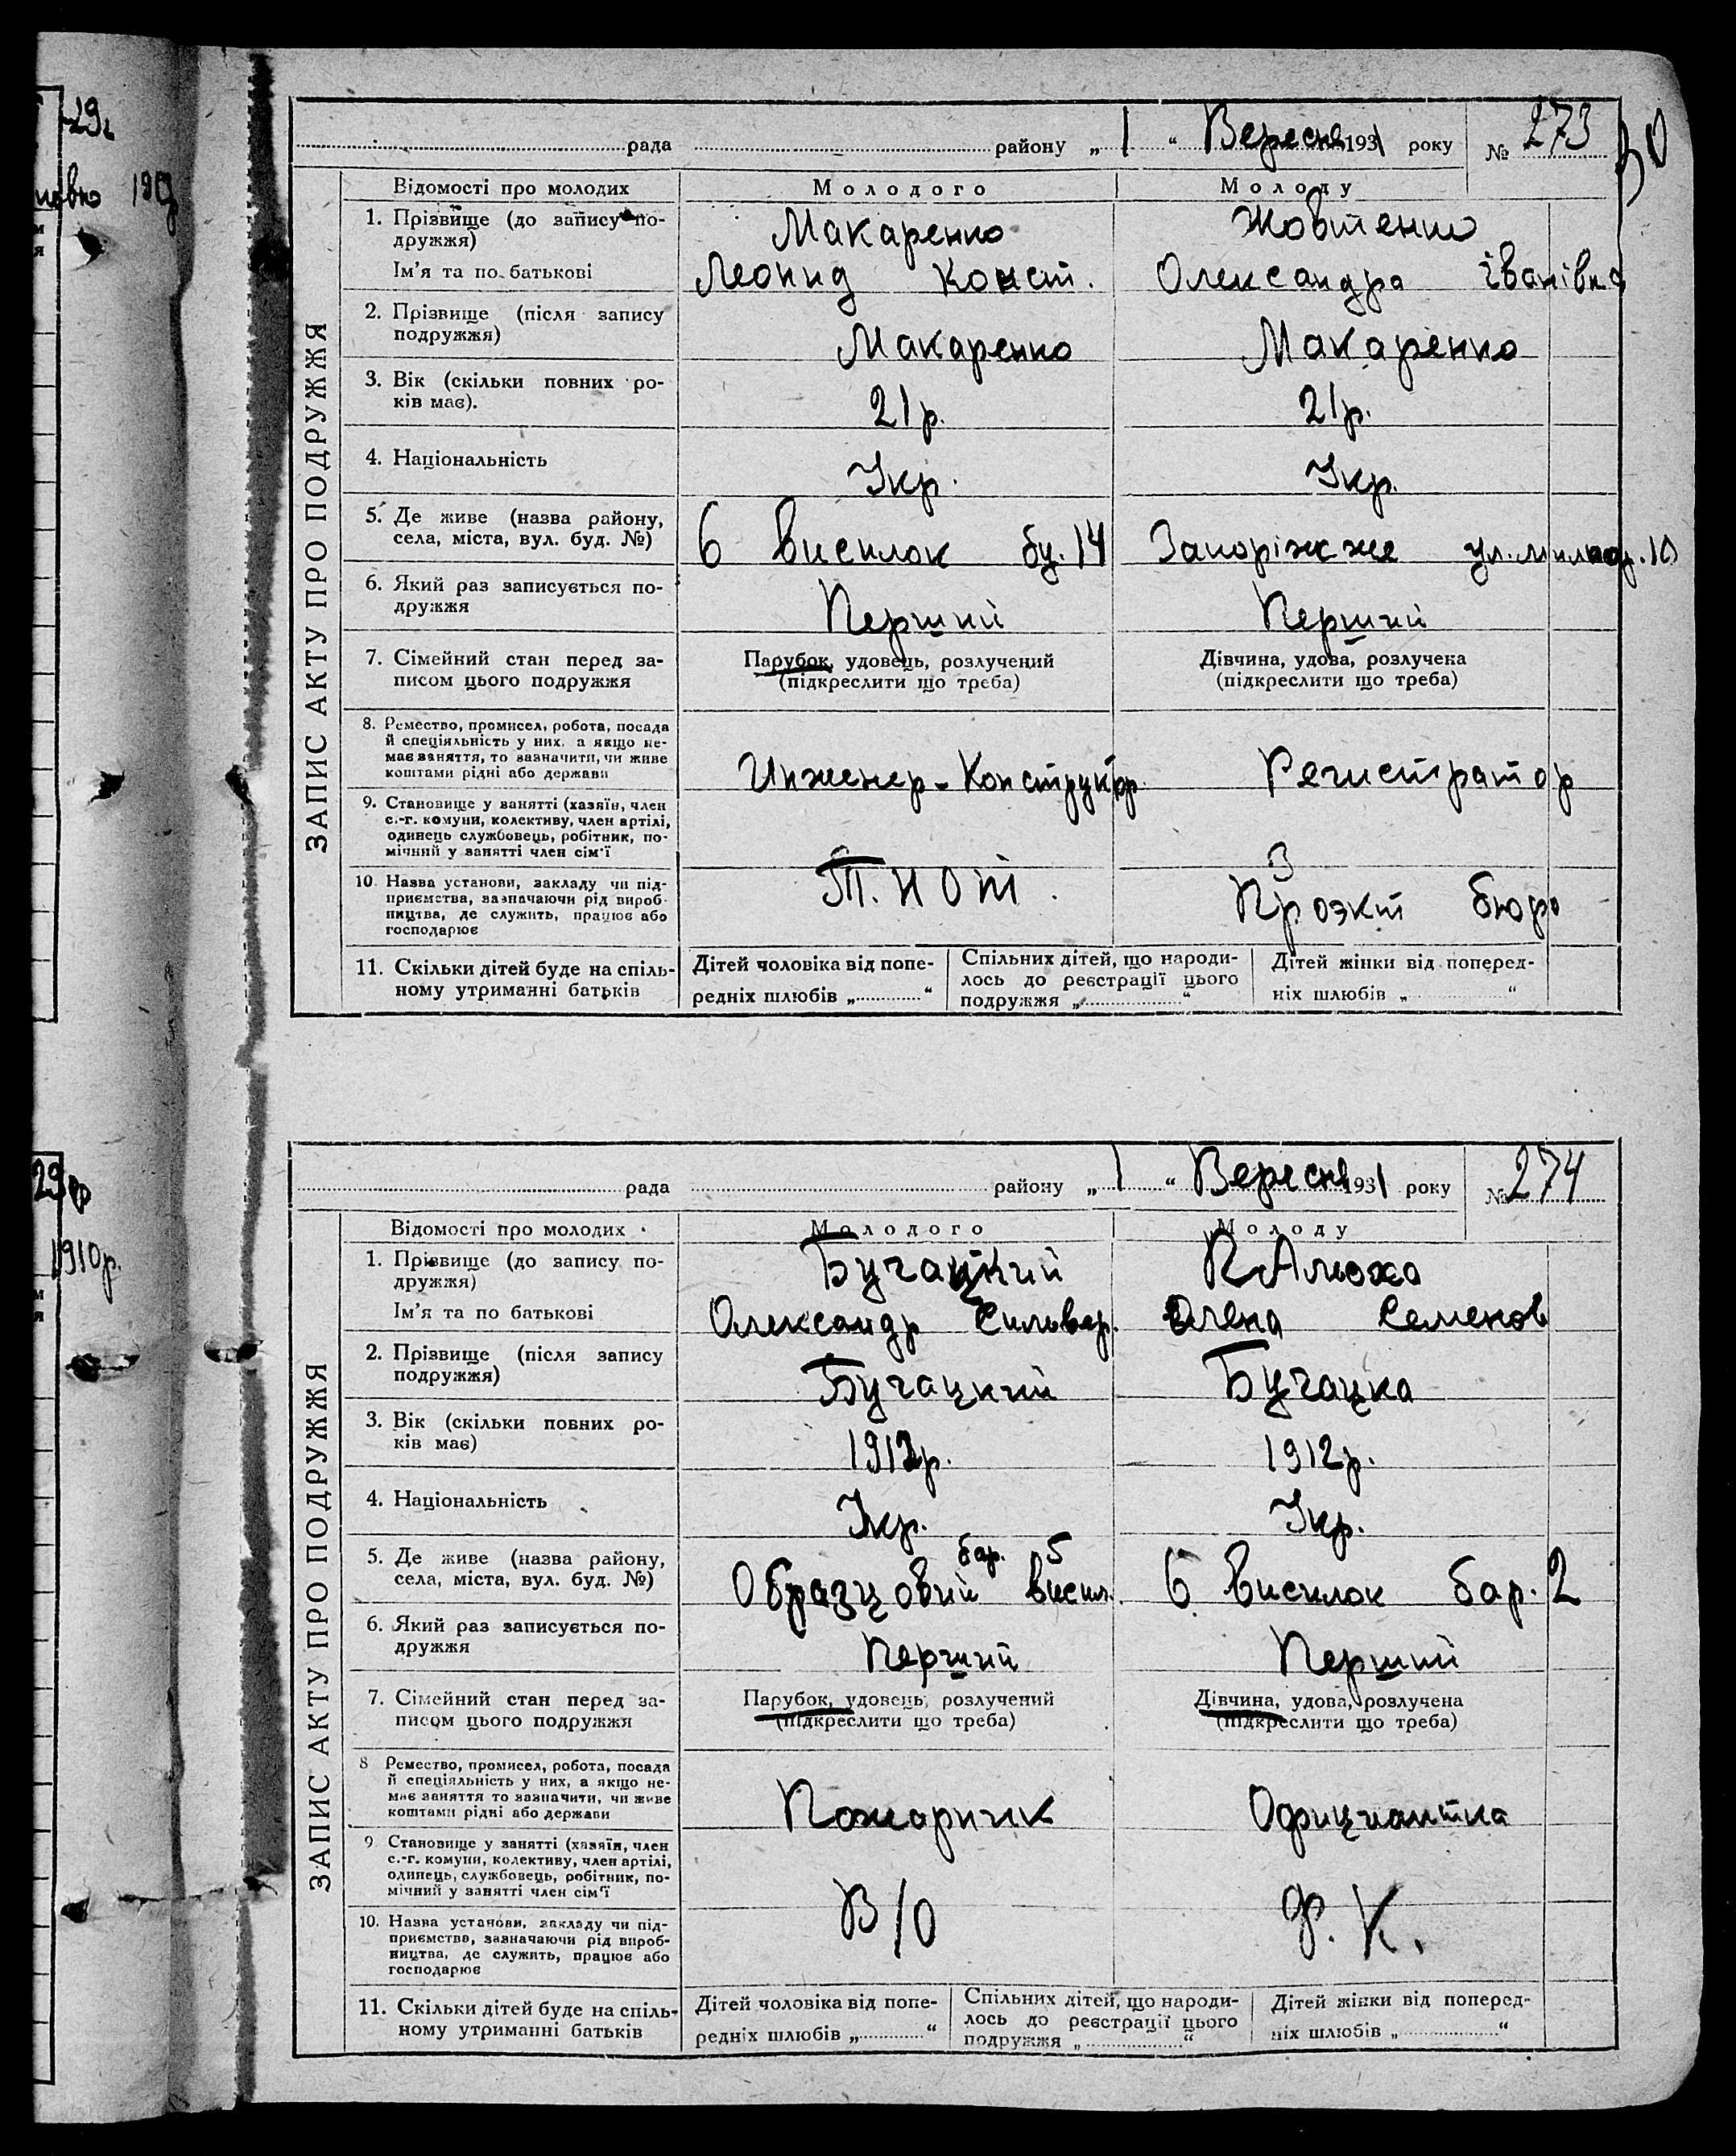 29.
1910р.
30
рада району „ 1 “ Вересня 1931 року № 273
ЗАПИС АКТУ ПРО ПОДРУЖЖЯ
Відомості про молодих Молодого Молоду
1. Прізвище (до запису по-
дружжя) Макаренко Жовтенко
Ім’я та по батькові Леонид Конст. Олександра Іванівна
2. Прізвище (після запису
подружжя) Макаренко Макаренко
3. Вік (скільки повних ро-
ків має). 21р. 21р.
4. Національність Укр. Укр.
5. Де живе (назва району,
села, міста, вул. буд. №) 6 висилок бу. 14 Запоріжже ул. 10
6. Який раз записується по-
дружжя Перший Перший
7. Сімейний стан перед за-
писом цього подружжя
Парубок, удовець, розлучений
(підкреслити що треба)
Дівчина, удова, розлучена
(підкреслити що треба)
8. Ремество, промисел, робота, посада
й спеціяльність у них, а якщо не-
має заняття, то зазначити, чи живе
коштами рідні або держави
Инженер-Конструктор Регистратор
9. Становище у занятті (хазяїн, член
с.-г. комуни, колективу, член артілі,
одинець службовець, робітник, по-
мічний у занятті член сім’ї
10. Назва установи, закладу чи під-
приємства, зазначаючи рід вироб-
ництва, де служить, працює або
господарює
Т.НОТ. Проэкт бюро
11. Скільки дітей буде на спіль-
ному утриманні батьків
Дітей чоловіка від попе-
редніх шлюбів „ “
Спільних дітей, що народи-
лось до реєстрації цього
подружжя „ “
Дітей жінки від поперед-
ніх шлюбів „ “
рада району „ 1 “ Вересня 1931 року № 274
ЗАПИС АКТУ ПРО ПОДРУЖЖЯ
Відомості про молодих Молодого Молоду
1. Прізвище (до запису по-
дружжя) Бучацкий
Ім’я та по батькові Олександр Сильвер. Олена Семенов
2. Прізвище (після запису
подружжя) Бучацкий Бучацка
3. Вік (скільки повних ро-
ків має) 1912р. 1912р.
4. Національність Укр. Укр.
5. Де живе (назва району,
села, міста, вул. буд. №) Образцовий бар. 5 висил. 6 висилок бар. 2
6. Який раз записується по-
дружжя Перший Перший
7. Сімейний стан перед за-
писом цього подружжя
Парубок, удовець, розлучений
(підкреслити що треба)
Дівчина, удова, розлучена
(підкреслити що треба)
8 Ремество, промисел, робота, посада
й спеціяльність у них, а якщо не-
має заняття то зазначити, чи живе
коштами рідні або держави
Пожарник Официантка
9. Становище у занятті (хазяїн, член
с.-г. комуни, колективу, член артілі,
одинець, службовець, робітник, по-
мічний у занятті член сім’ї
10. Назва установи, закладу чи під-
приємства, зазначаючи рід вироб-
ництва, де служить, працює або
господарює
В/О Ф. К.
11. Скільки дітей буде на спіль-
ному утриманні батьків
Дітей чоловіка від попе-
редніх шлюбів „ “
Спільних дітей, що народи-
лось до реєстрації цього
подружжя „ “
Дітей жінки від поперед-
ніх шлюбів „ “